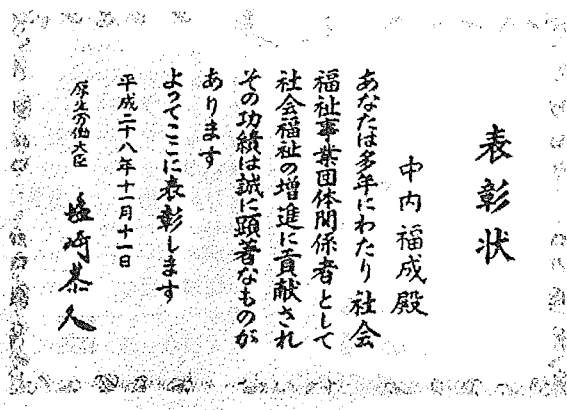 表彰状
中内福成殿
あなたは多年にわたり社会
福祉事業団体関係者として
社会福祉の増進に貢献され
その功績は誠に顕著なものが
あります
よってここに表彰します
平成二十八年十一月十一日
厚生労働大臣 塩崎恭久